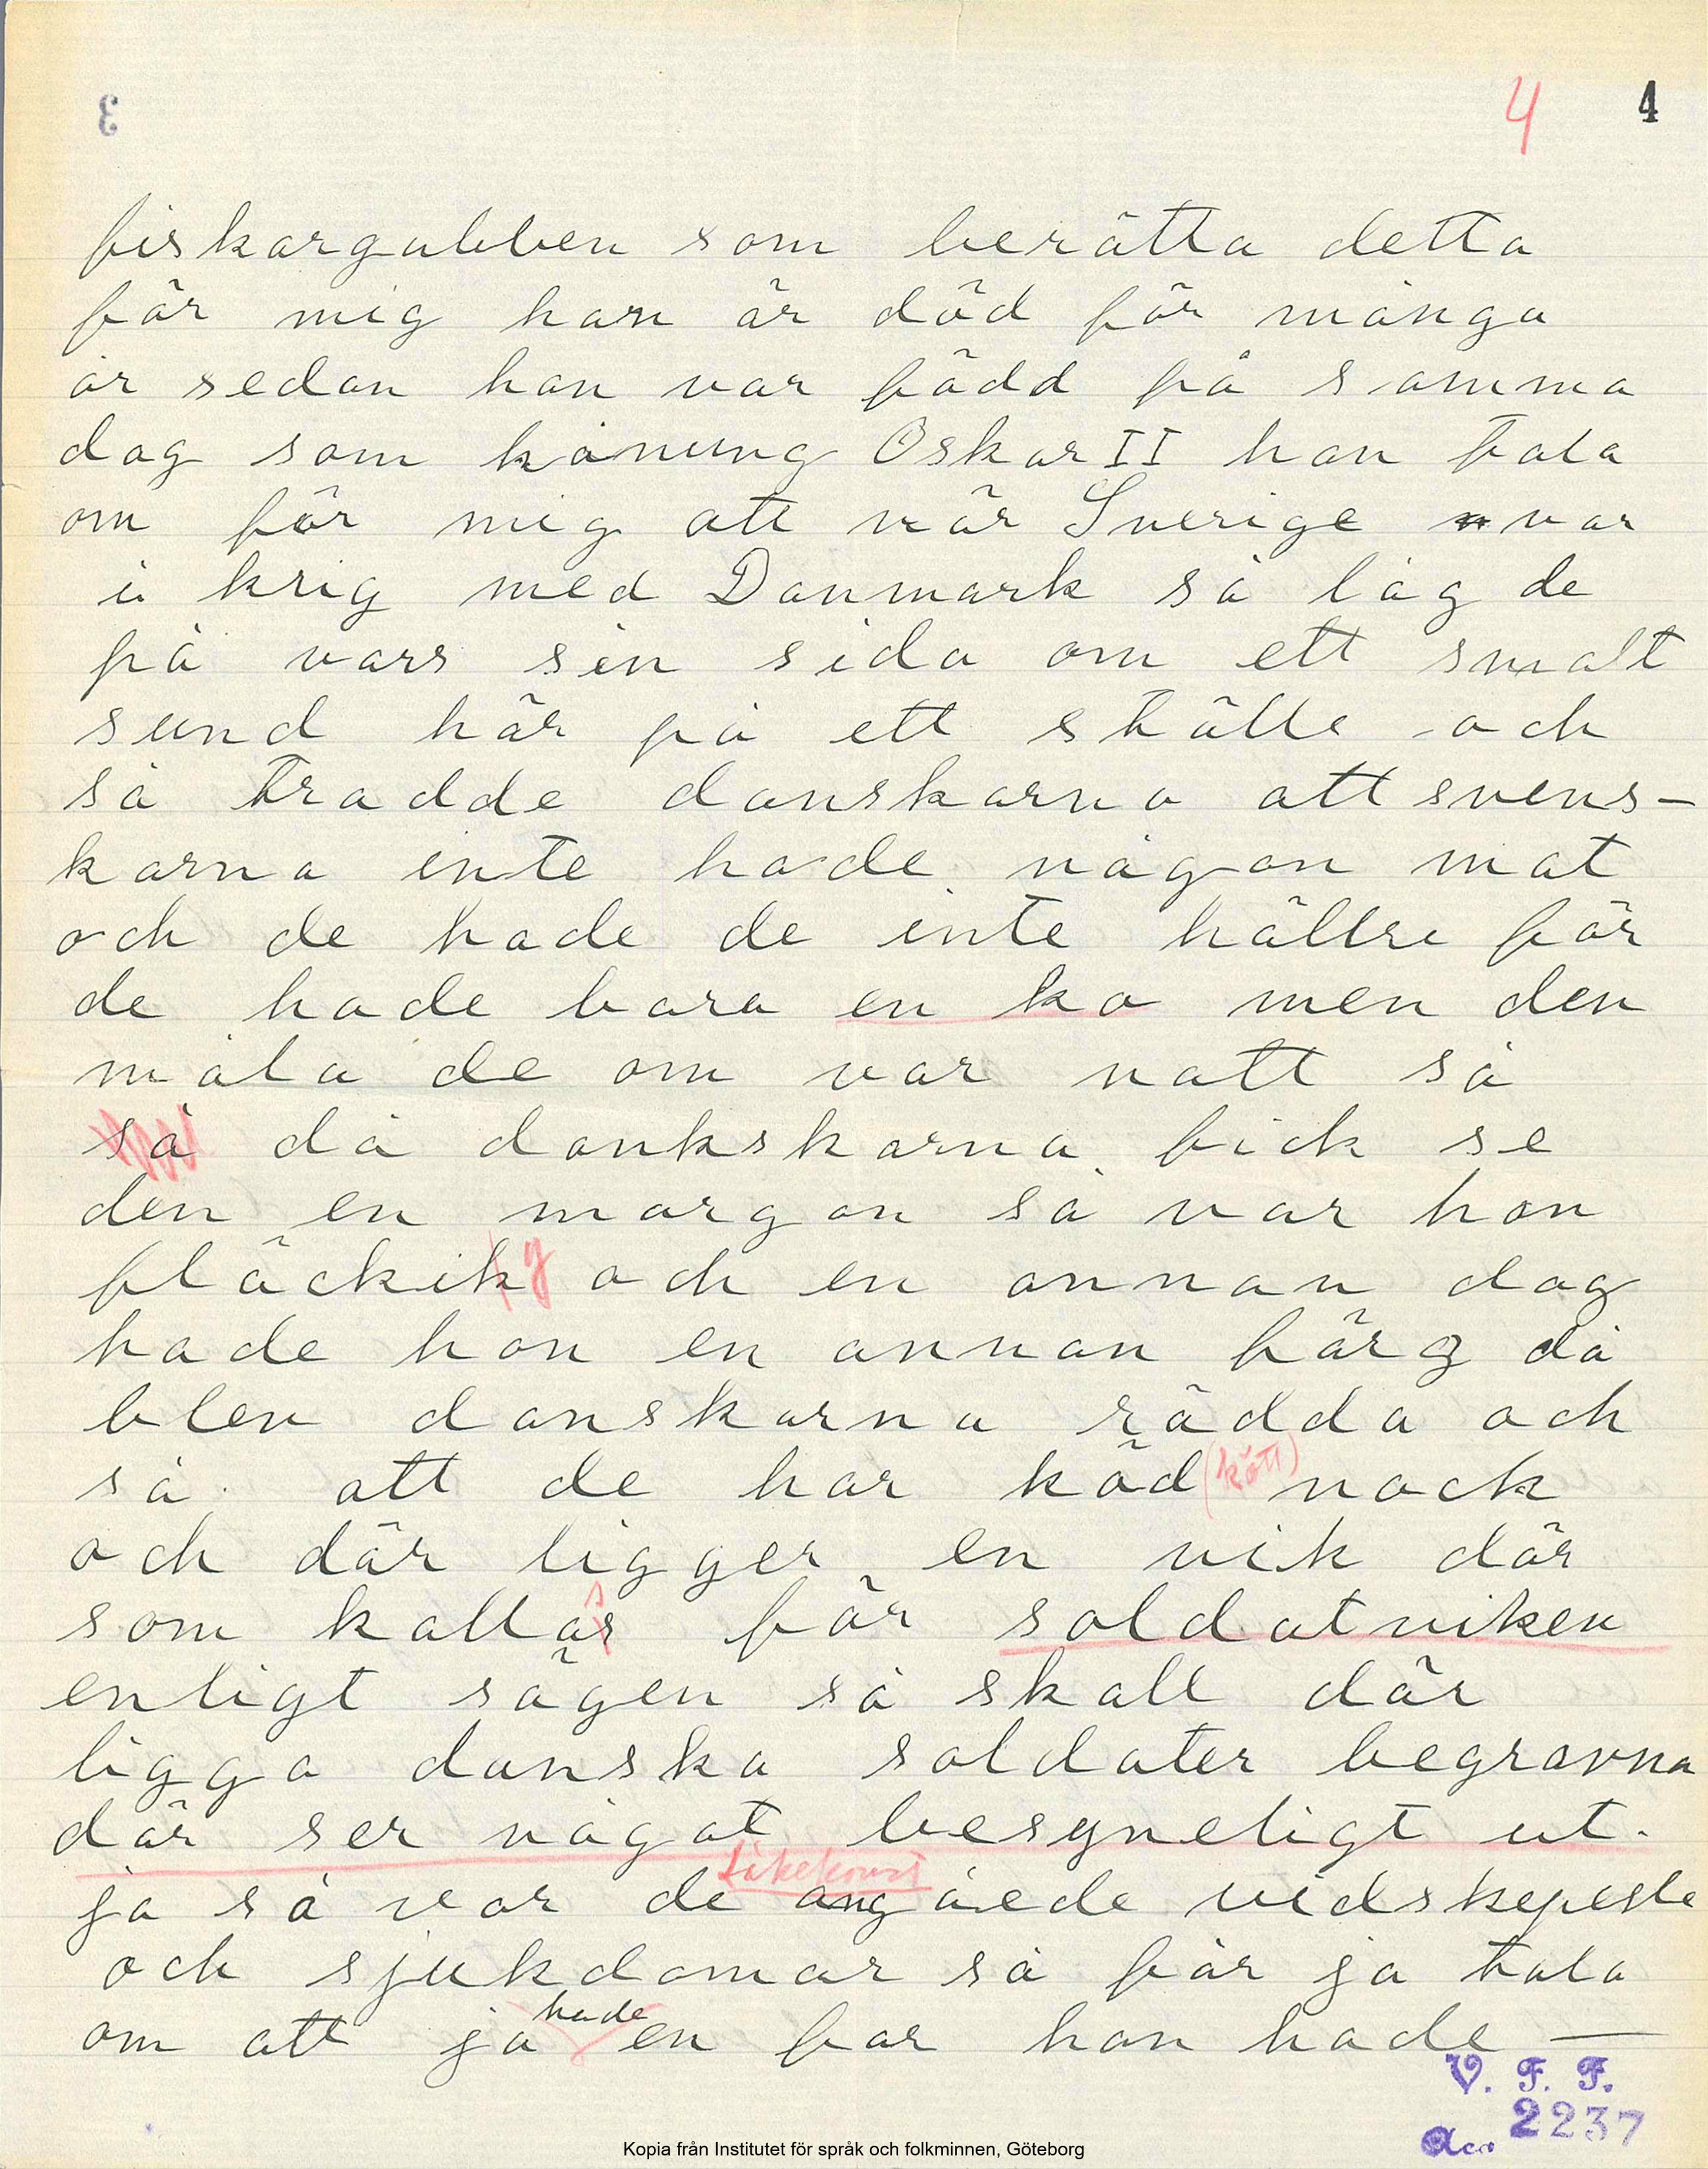 3
4 4
fiskargubben som berätta detta
för mig han är död för många
år sedan han var född på samma
dag som konung Oskar II han tala
om för mig att när Sverige var
i krig med Danmark så låg de
på vars sin sida om ett smalt
sund här på ett ställe och
så trodde danskarna att svens-
karna inte hade någon mat
och de hade de inte hällre för
de hade bara en ko men den
måla de om var natt så
så då dankskarna fick se
den en morgon så var hon
fläckik g och en annan dag
hade hon en annan färg då
blev danskarna rädda och
sa att de har köd (kött) nock
och där ligger en vik där
som kallas för soldatviken
enligt sägen så skall där
ligga danska soldater begravna
där ser något besyneligt ut.
Läkekonst
ja så var de angåede vidskepeste
och sjukdomar så får ja tala
hade
om att ja en far han hade —
V. F. F.
acc. 2237
Kopia från Institutet för språk och folkminnen, Göteborg